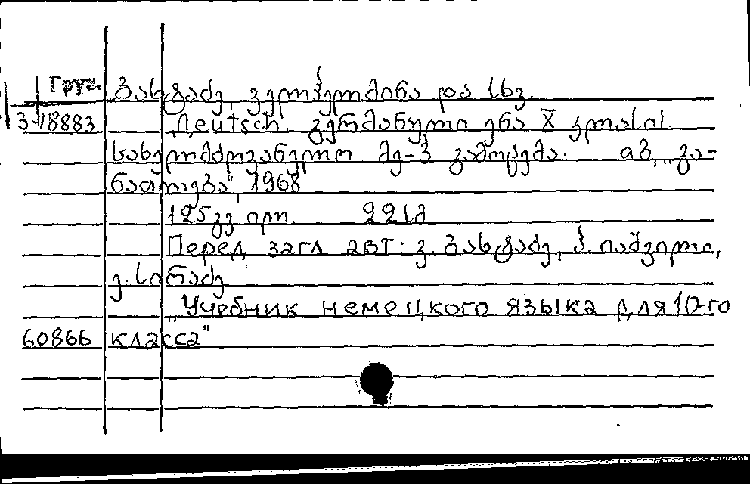 Груз. ბახტაძე, ვილჰელმინა და სხვ.
3-18883 Deutsch. გერმანული ენა X კლასის
სახელმძღვანელო მე-3 გამოცემა. თბ., გა-
ნათლება, 1968
125 გვ. ილ. 22სმ
Перед загл. авт: ვ. ბახტაძე, ჰ. იაშვილი,
ე. სირაძე
"Учебник немецкого языка для 10-го
60866 класса"